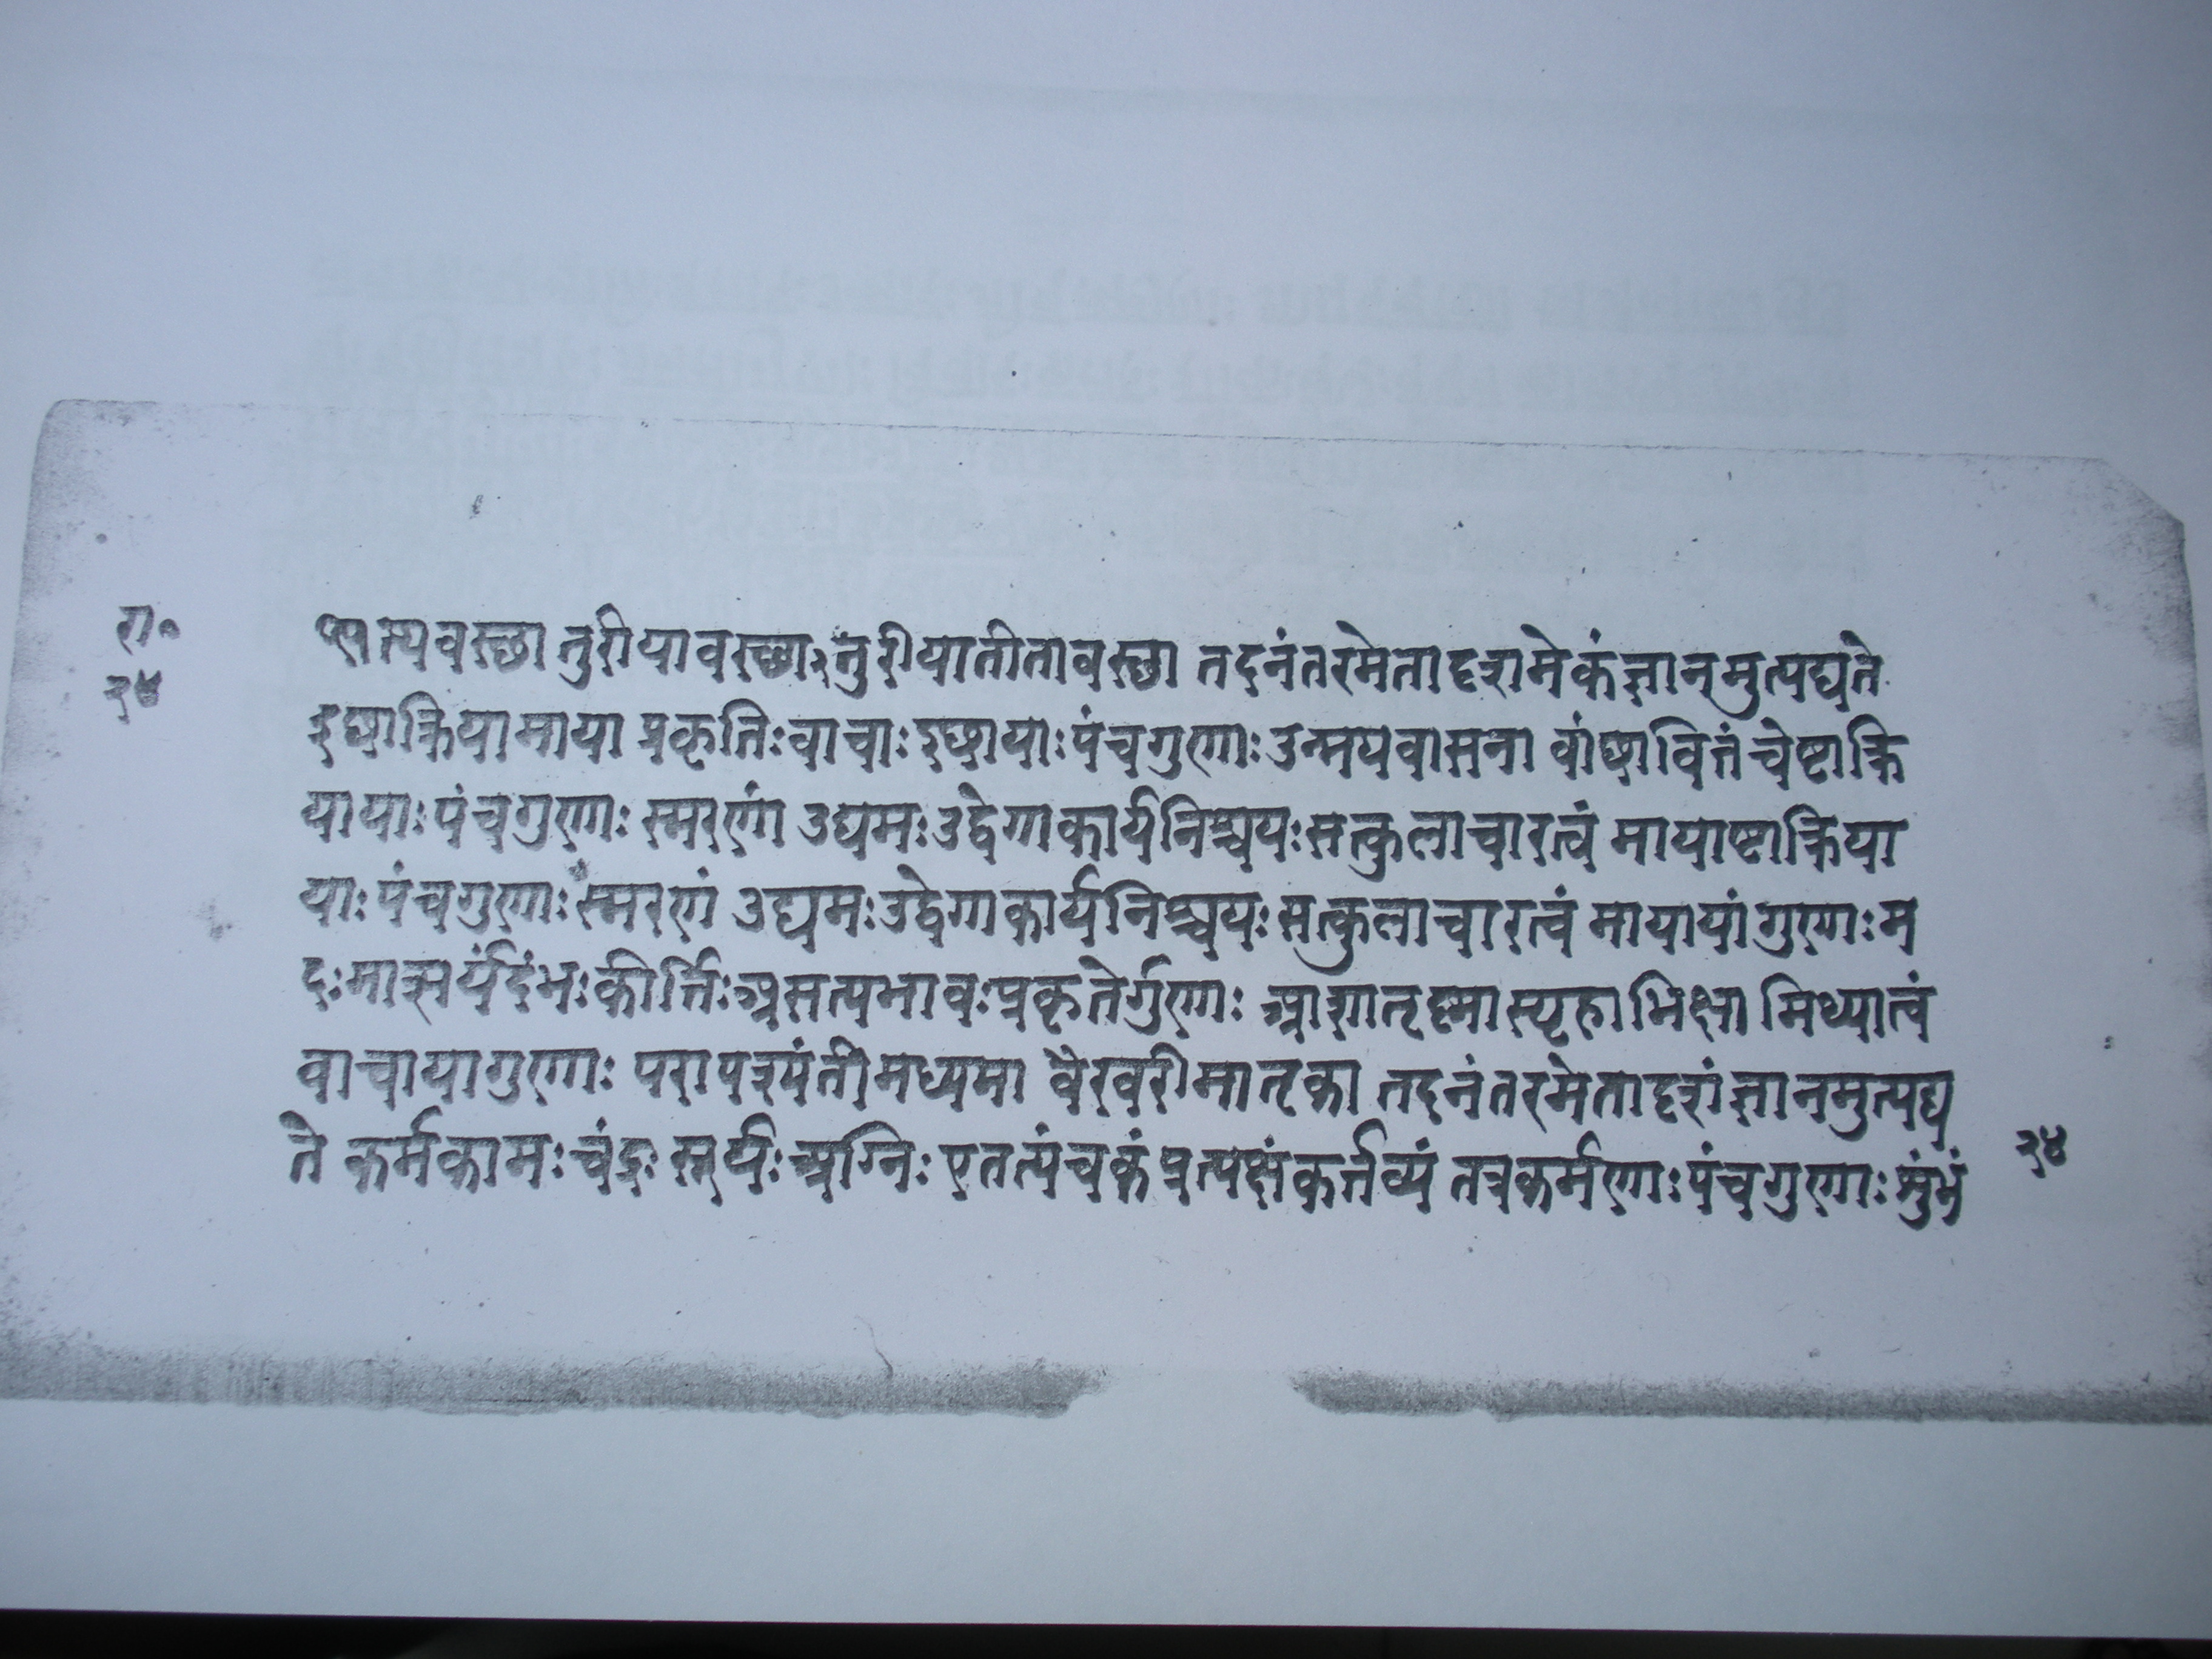 रा०
२४
प्स्यवस्छा तुरीयावस्छाः तुरीयातीतावस्छा तदनंतरमेतादृशमेकं ज्ञानमुत्पद्यते
इछाक्रियामाया प्रकृतिः वाचाः इछायाः पंचगुणाः उन्मयवासना वांछावितं चेष्टाक्रि
यायाः पंचगुणाः स्मरणं उद्यमः उद्वेगाकार्यनिश्चयः सत्कुलाचारत्वं मायाष्टाक्रिया
याः पंचगुणाः स्मरणं उद्यमः उद्वेगाकार्यनिश्चयः सत्कुलाचारत्वं मायायां गुणाः म
दः मात्सर्यं दंभः कीर्त्तिः असत्यभावः प्रकृतेर्गुणाः आशातृष्मास्पृहाभिक्षा मिथ्यात्वं
वाचायागुणाः परापश्यंतीमध्यमा वैरवरीमातृका तदनंतरमेतादृशं ज्ञानमुत्पद्य
ते कर्मकामः चंद्रः सूर्यः अग्निः एतत्पंचकं प्रत्यक्षं कर्त्तव्यं तत्रकर्मणाः पंचगुणाः शुंभं
२४